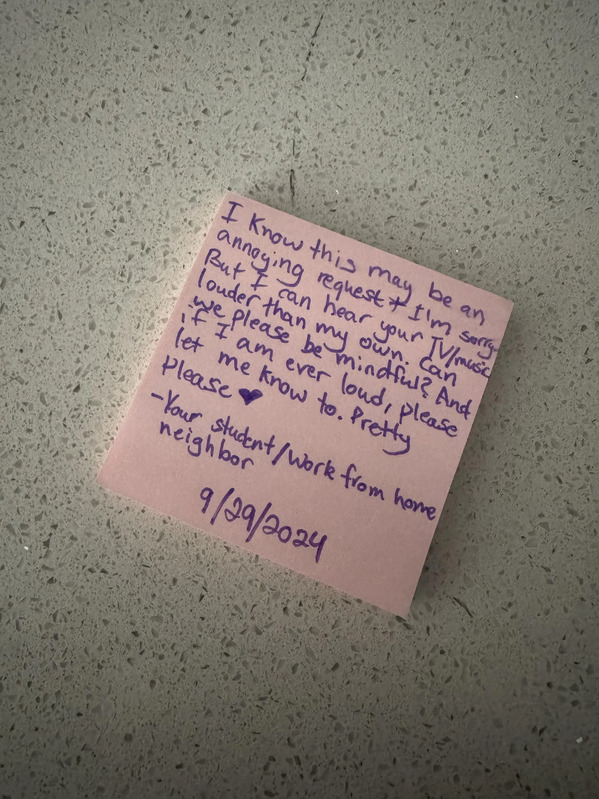 I Know this may be an
annoying request + I'm sorry.
But I can hear your TV/music
louder than my own. Can
we please be mindful? And
if I am ever loud, please
let me know to. Pretty
Please ♥
-Your student/work from home
neighbor
9/29/2024